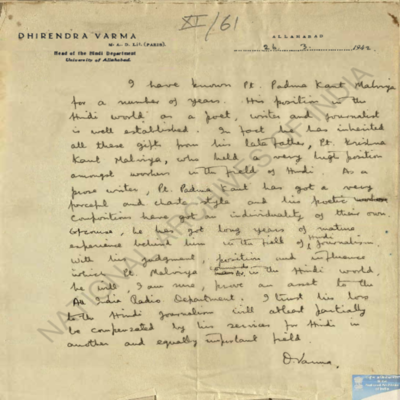 XI/61
DHIRENDRA VARMA
M. A., D. Lit. (PARIS).
Head of the Hindi Department
University of Allahabad.
ALLAHABAD
26. 3.
I have known Pt. Padma Kant Malviya
for a number of years. His position in the
Hindi world as a poet, writer and journalist
is well established. In fact he has inherited
all these gifts from his late father, Pt. Krishna
Kant Malviya, who held a very high position
amongst workers in the field of Hindi. As a
prose writer, Pt. Padma Kant has got a very
forceful and chaste style and his poetic
compositions have got an individuality of their own.
Ofcourse, he has got long years of mature
experience behind him in the field of Hindi journalism
With his judgment, position and influence
which Pt. Malviya in the Hindi world,
he will, I am sure, prove an asset to the
All India Radio Department. I trust his loss
to the Hindi journalism will atleast partially
be compensated by his services for Hindi in
another and equally important field.
D Varma.
NATIONAL ARCHIVES OF INDIA